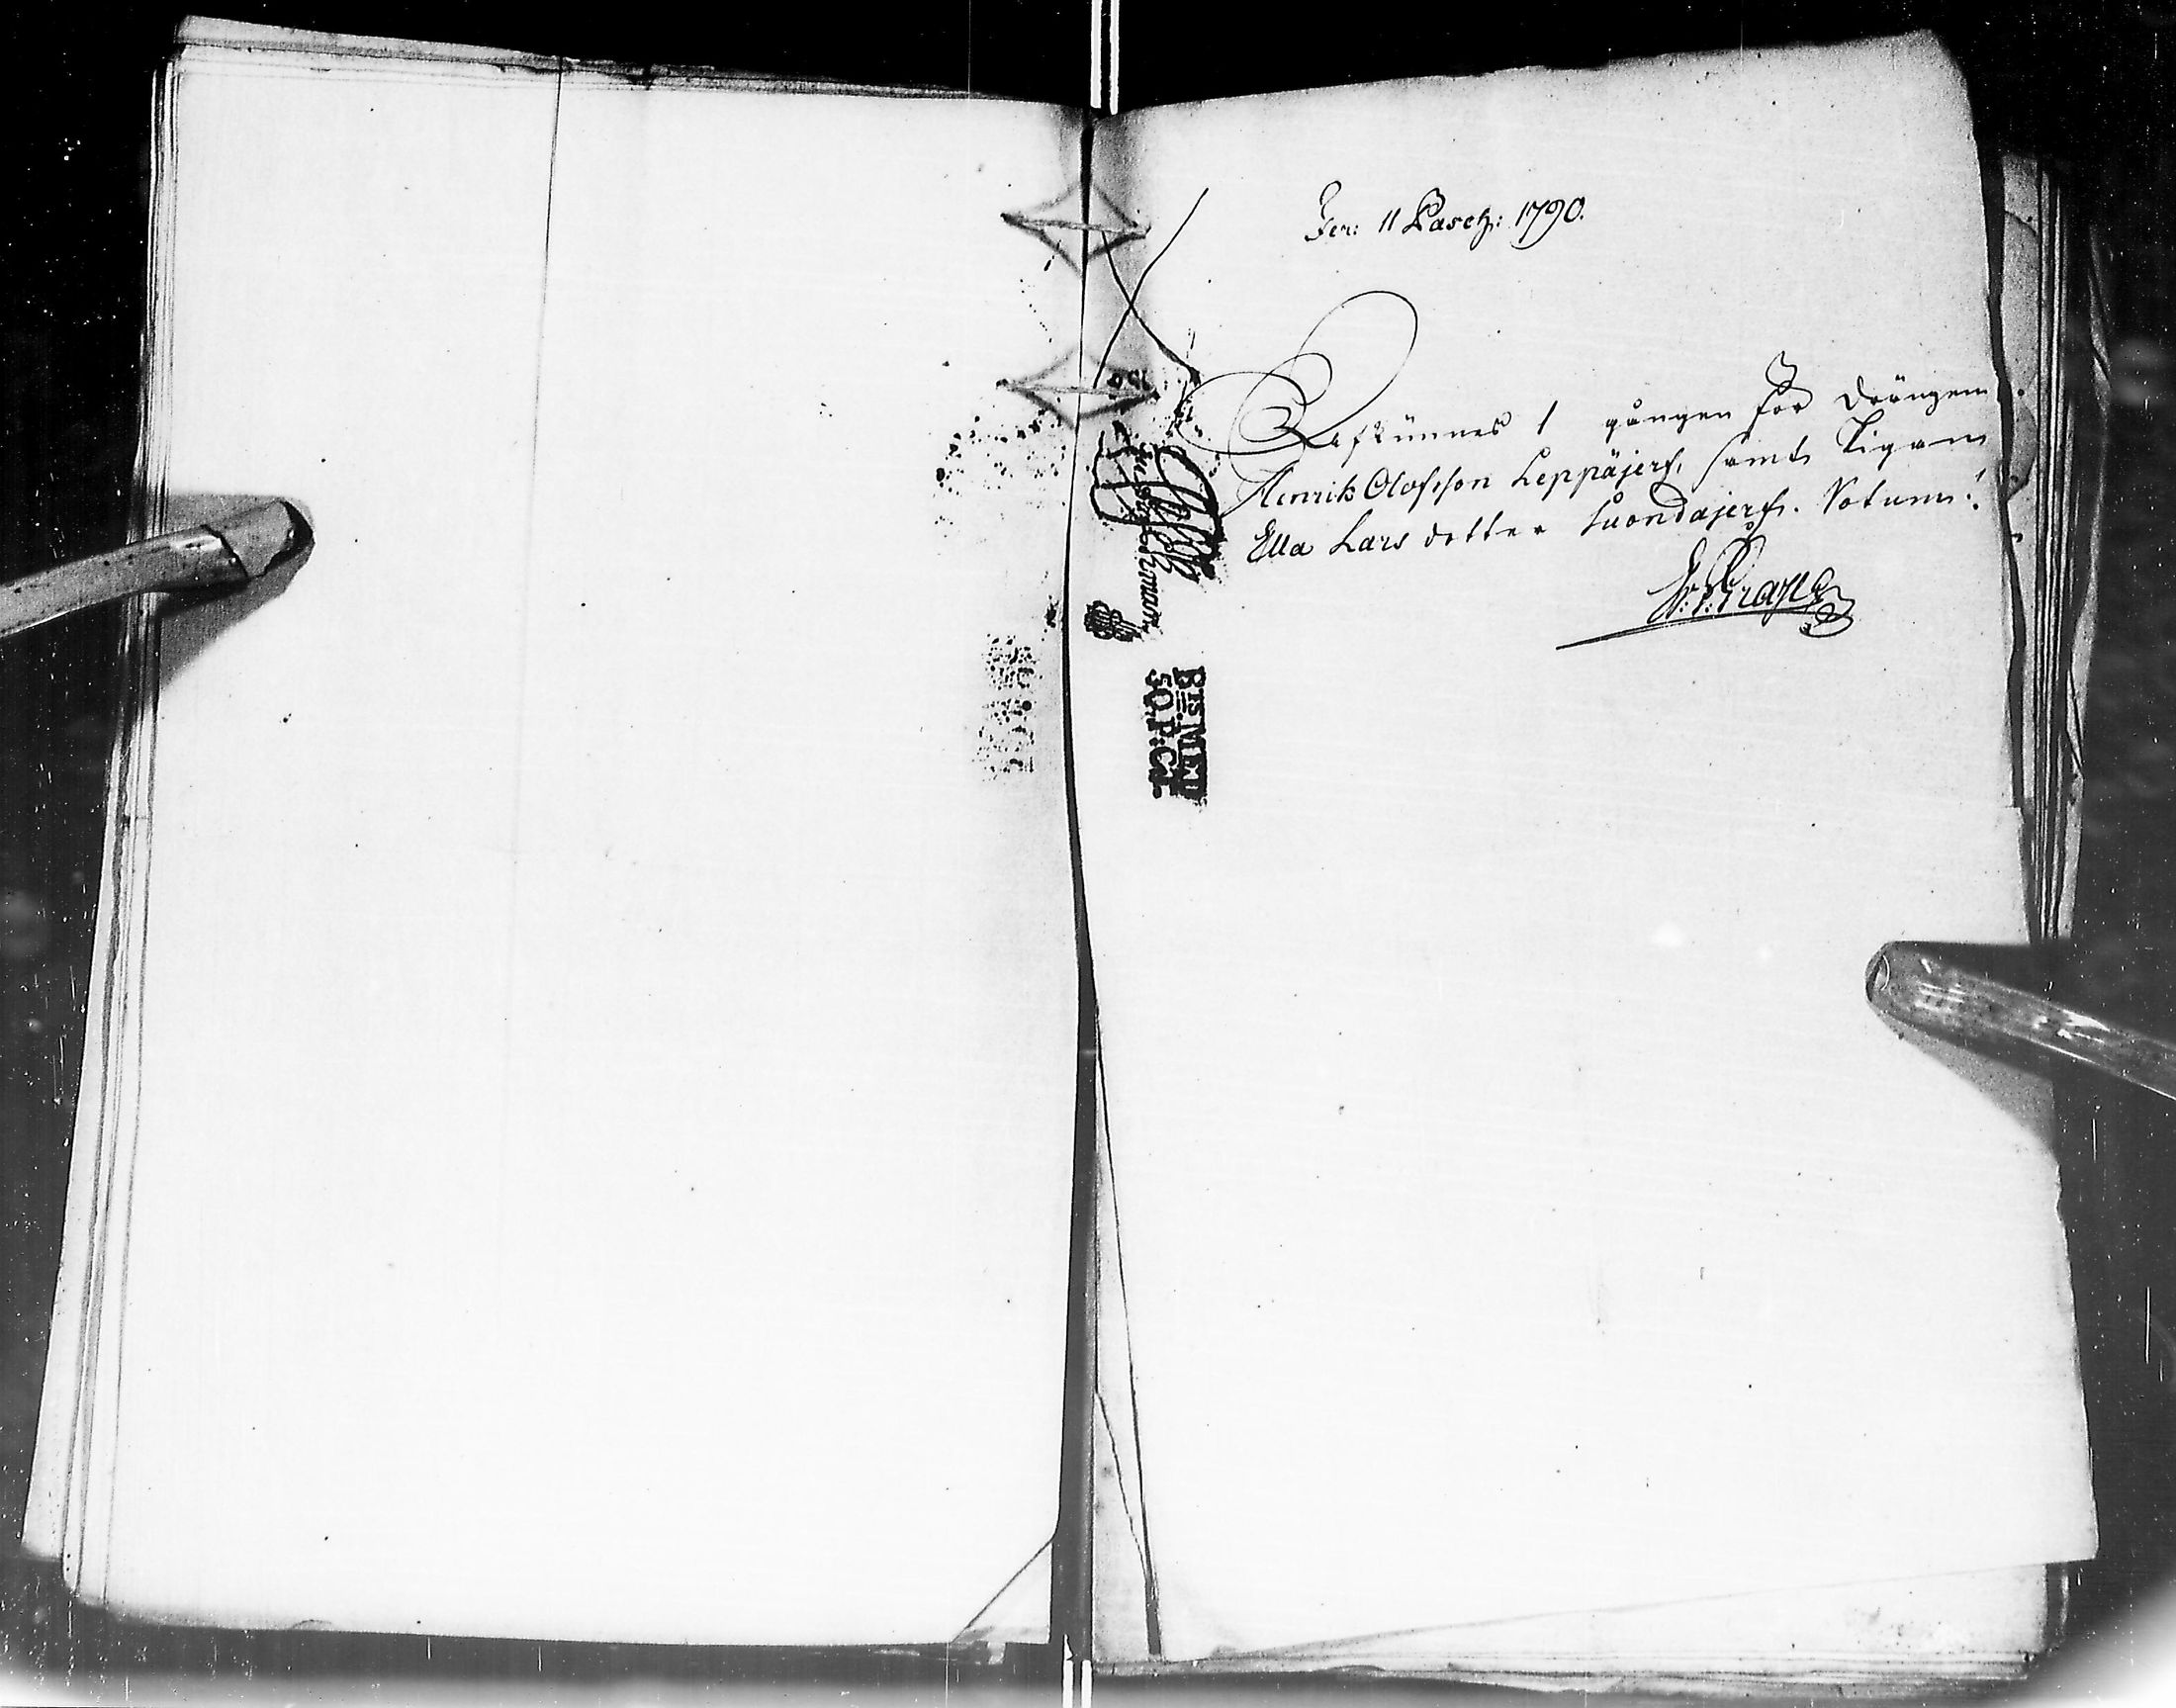 Fer: 11 Pasch: 1790.
Afkünnes 1 gången för Drängen
Henrik Olofsson Leppäjerf, samt Pigan
Ella Lars dotter Suondajerfi. Notum:
50. P:Ct.